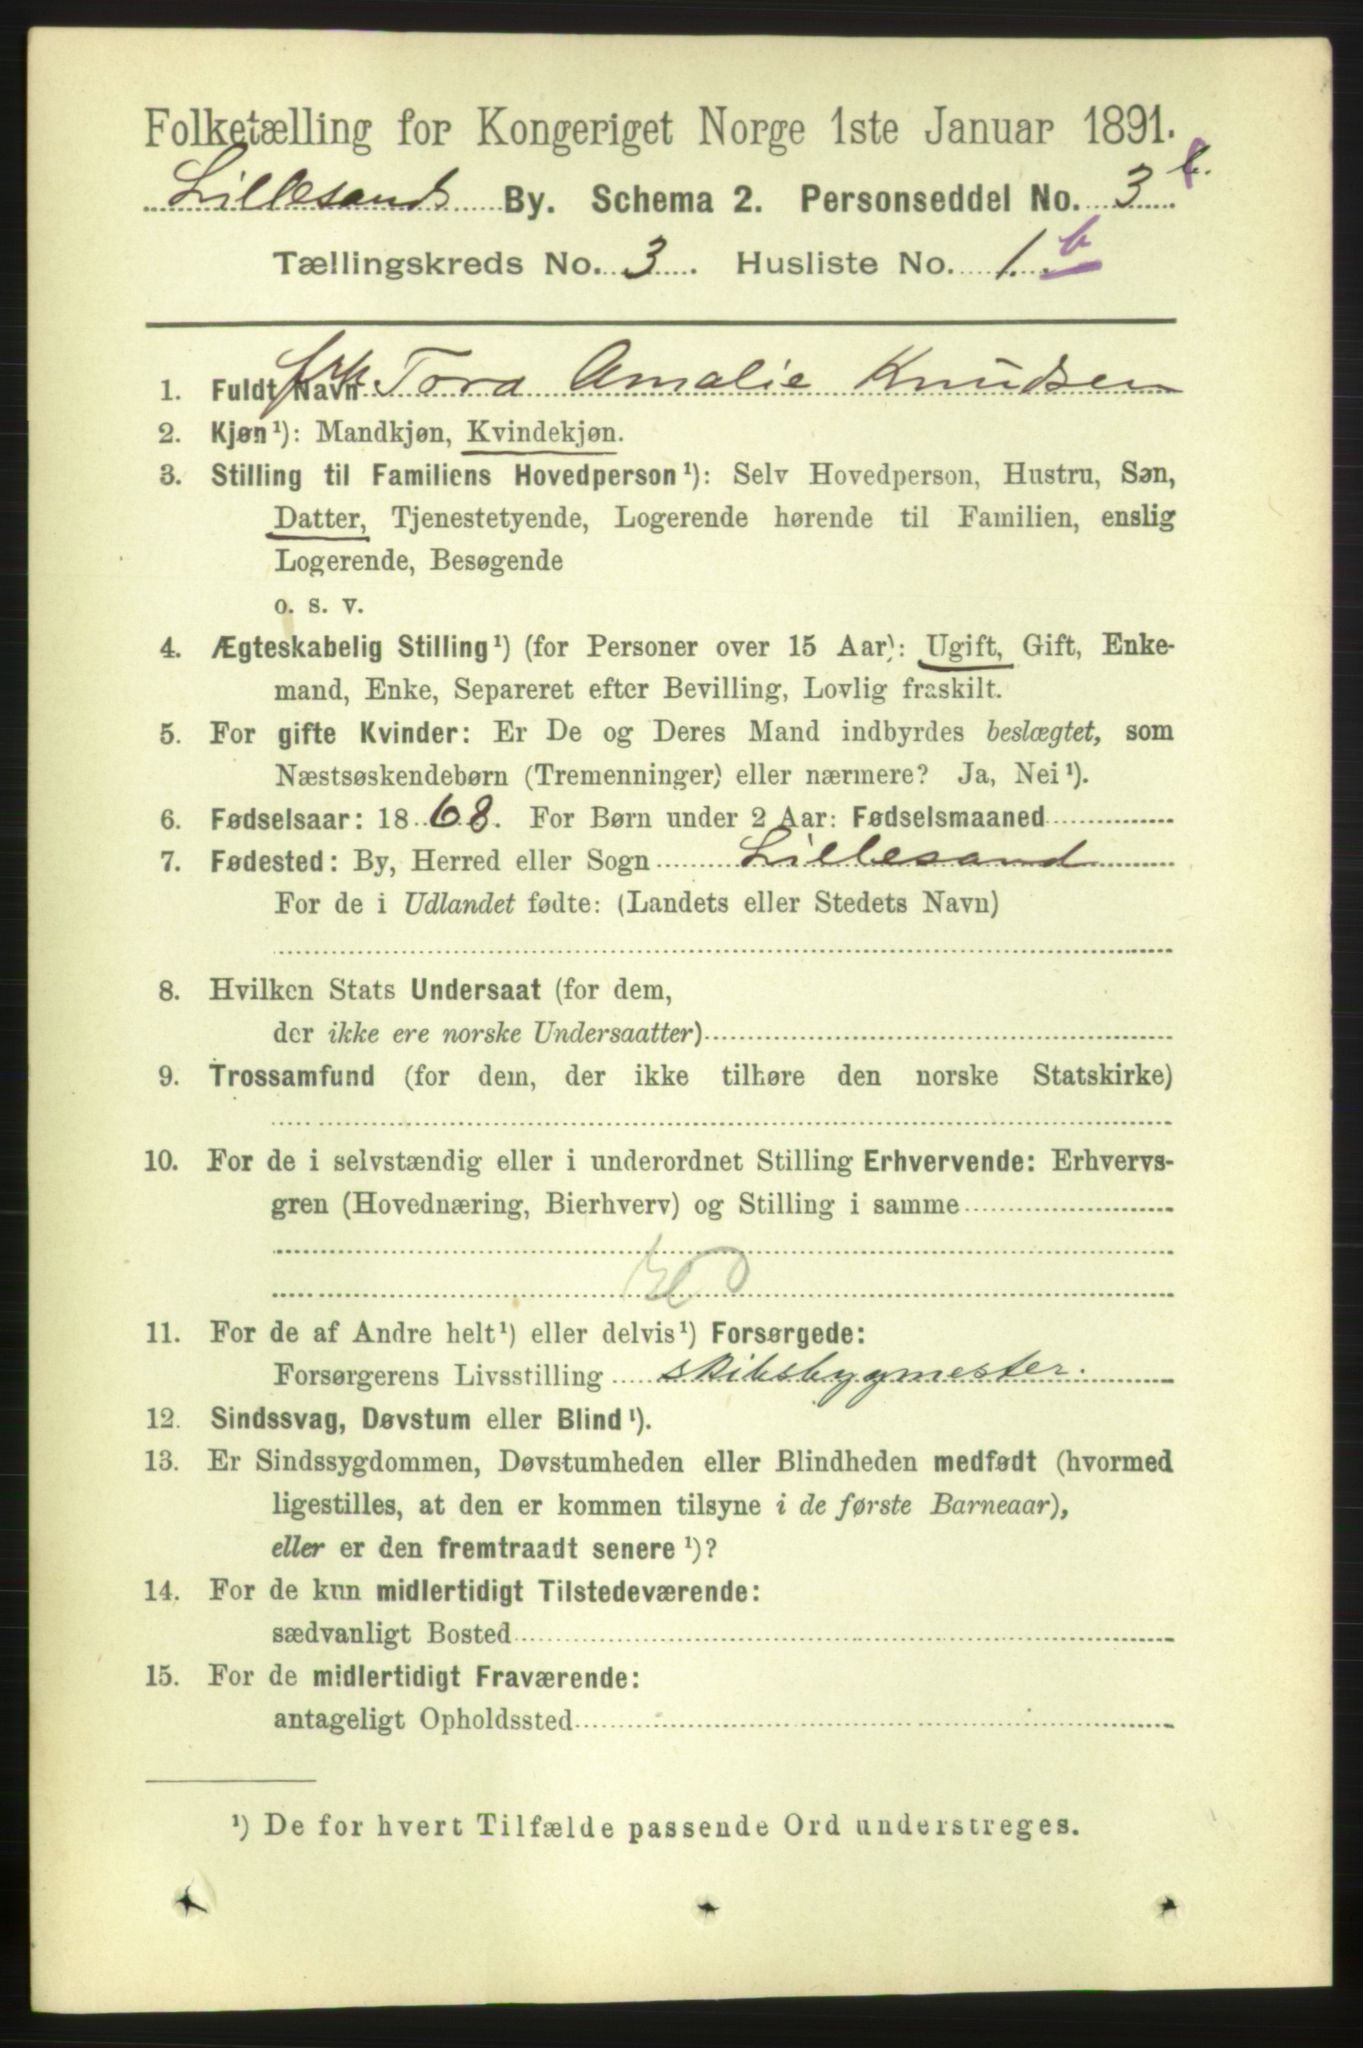 Folketælling for Kongeriget Norge 1ste Januar 1891.
Lillesands By. Schema 2. Personseddel No. 3 b.
Tællingskreds No. 3. Husliste No. 1. b
1. Fuldt Navn frk Tora Amalie Knudsen
2. Kjøn¹): Mandkjøn, Kvindekjøn.
3. Stilling til Familiens Hovedperson¹): Selv Hovedperson, Hustru, Søn,
Datter, Tjenestetyende, Logerende hørende til Familien, enslig
Logerende, Besøgende
o. s. v.
4. Ægteskabelig Stilling¹) (for Personer over 15 Aar): Ugift, Gift, Enke-
mand, Enke, Separeret efter Bevilling, Lovlig fraskilt.
5. For gifte Kvinder: Er De og Deres Mand indbyrdes beslægtet, som
Næstsøskendebørn (Tremenninger) eller nærmere? Ja, Nei¹).
6. Fødselsaar: 1868. For Børn under 2 Aar: Fødselsmaaned
7. Fødested: By, Herred eller Sogn Lillesand
For de i Udlandet fødte: (Landets eller Stedets Navn)
8. Hvilken Stats Undersaat (for dem,
der ikke ere norske Undersaatter)
9. Trossamfund (for dem, der ikke tilhøre den norske Statskirke)
10. For de i selvstændig eller i underordnet Stilling Erhvervende: Erhvervs-
gren (Hovednæring, Bierhverv) og Stilling i samme
11. For de af Andre helt¹) eller delvis¹) Forsørgede:
Forsørgerens Livsstilling skibsbygmester.
12. Sindssvag, Døvstum eller Blind¹).
13. Er Sindssygdommen, Døvstumheden eller Blindheden medfødt (hvormed
ligestilles, at den er kommen tilsyne i de første Barneaar),
eller er den fremtraadt senere¹)?
14. For de kun midlertidigt Tilstedeværende:
sædvanligt Bosted
15. For de midlertidigt Fraværende:
antageligt Opholdssted
¹) De for hvert Tilfælde passende Ord understreges.